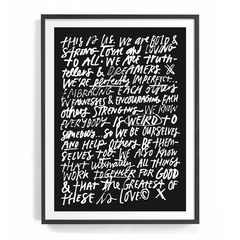 THIS IS US. WE ARE BOLD &
STRONG, LOYAL AND LOVING
TO ALL. WE ARE TRUTH
TELLERS & DREAMERS. X
WE'RE PERFECTLY IMPERFECT...
EMBRACING EACH OTHERS
WEAKNESSES & ENCOURAGING EACH
OTHERS STRENGTHS. WE KNOW
EVERYBODY IS WEIRD TO
SOMEBODY... SO WE BE OURSELVES
AND HELP OTHERS BE THEM-
SELVES TOO. WE ALSO KNOW
THAT ULTIMATELY ALL THINGS
WORK TOGETHER FOR GOOD
& THAT THE GREATEST OF
THESE IS LOVE© X